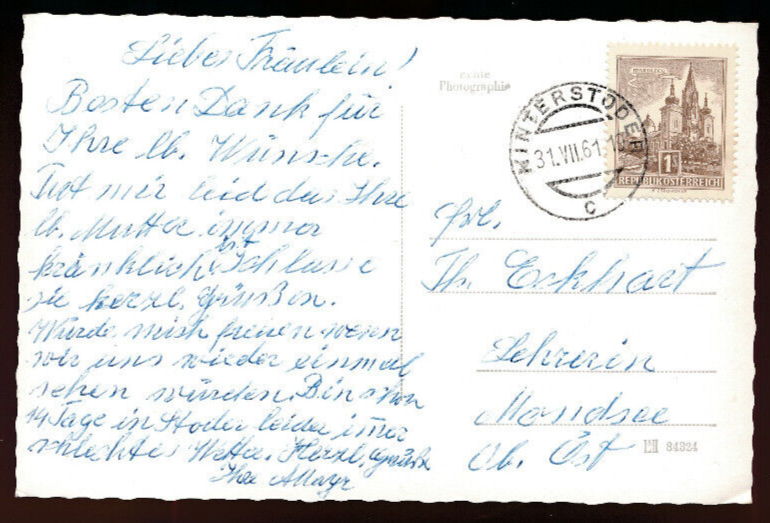 Liebes Fräulein!
Besten Dank für
Ihre lb. Wünsche.
Tut mir leid das Ihre
lb. Mutter immer
kränklich ist. Ich lasse
sie herzl. Grüßen.
Würde mich freuen wenn
wir uns wieder einmal
sehen würden. Bin schon
14 Tage in Stoder leider immer
schlechtes Wetter. Herzl. Grüße
Ihre AMayr
echte
Photographie
HINTERSTODER
31.VII.61
c
1S
REPUBLIK ÖSTERREICH
Frl.
Th. Eckhart
Lehrerin
Mondsee
Ob. Öst
84324